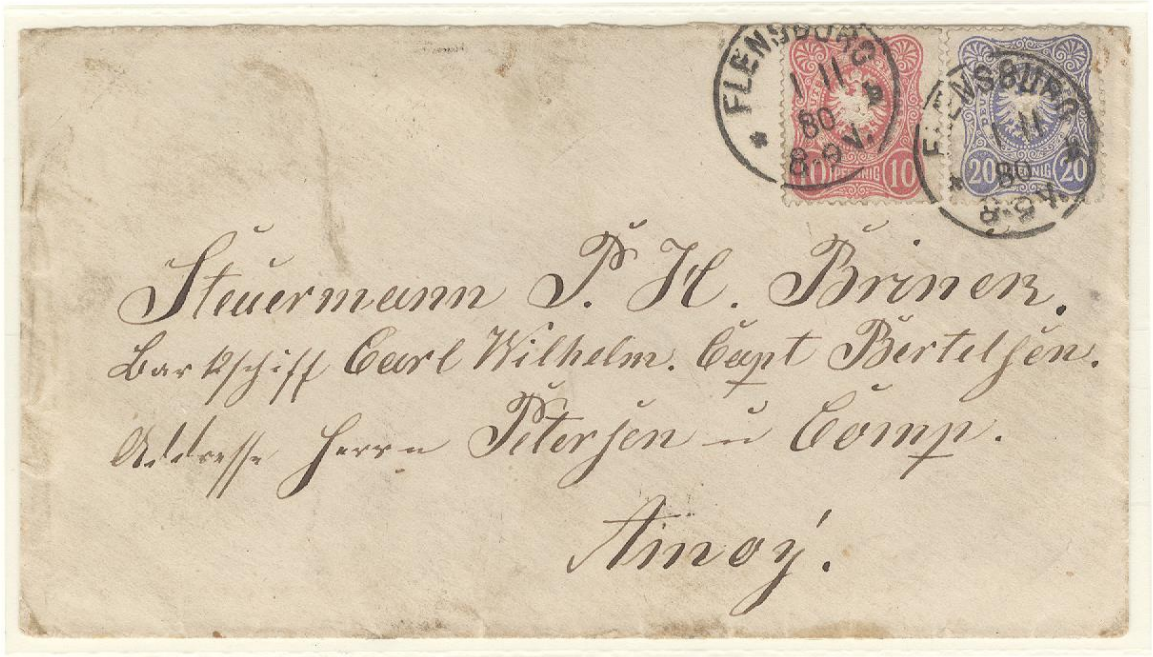 FLENSBURG
1 11
80
8-9V.
10 PFENNIG 10
FLENSBURG
1 11
80
8-9V.
20 PFENNIG 20
Steuermann P. H. Brinck.
Barkschiff Carl Wilhelm. Capt Bertelsen.
Addresse Herrn Petersen u Comp.
Amoy.